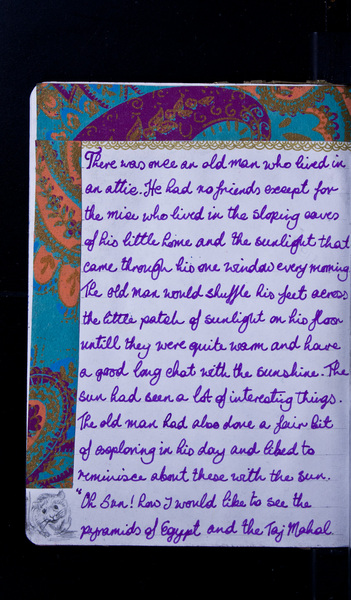 There was once an old man who lived in
an attic. He had no friends except for
the mise who lived in the sloping eaves
of his little home and the sunlight that
came through his one window every morning.
The old man would shuffle his feet across
the little patch of sunlight on his floor
untill they were quite warm and have
a good long chat with the sunshine. The
sun had seen a lot of interesting things.
The old man had also done a fair bit
of exploring in his day and liked to
reminisce about these with the sun.
"Oh Sun! how I would like to see the
pyramids of Egypt and the Taj Mahal.